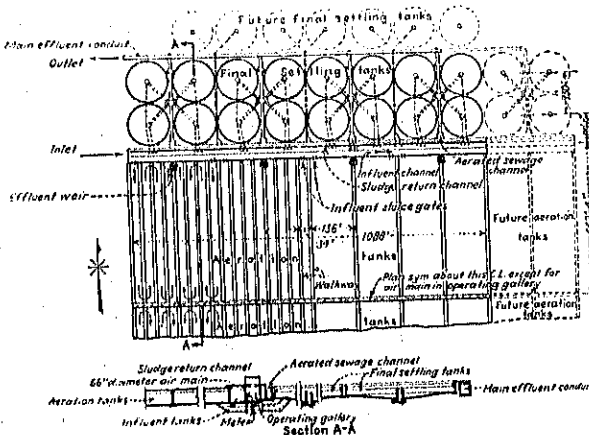 Future final settling tanks
Main effluent conduit
A
Outlet
Final Settling tanks
Inlet
Aerated sewage channel
Influent channel
Sludge return channel
Effluent weir
Influent sluice gates
136'
34'
1088'
Future aeration tanks
Aeration tanks
Walkway
Plan sym about this C.L. except for
air main in operating gallery
Aeration tanks
Future aeration tanks
A
Sludge return channel
Aerated sewage channel
66" diameter air main
Final settling tanks
Aeration tanks
Main effluent conduit
Influent tanks
Meter
Operating gallery
Section A-A